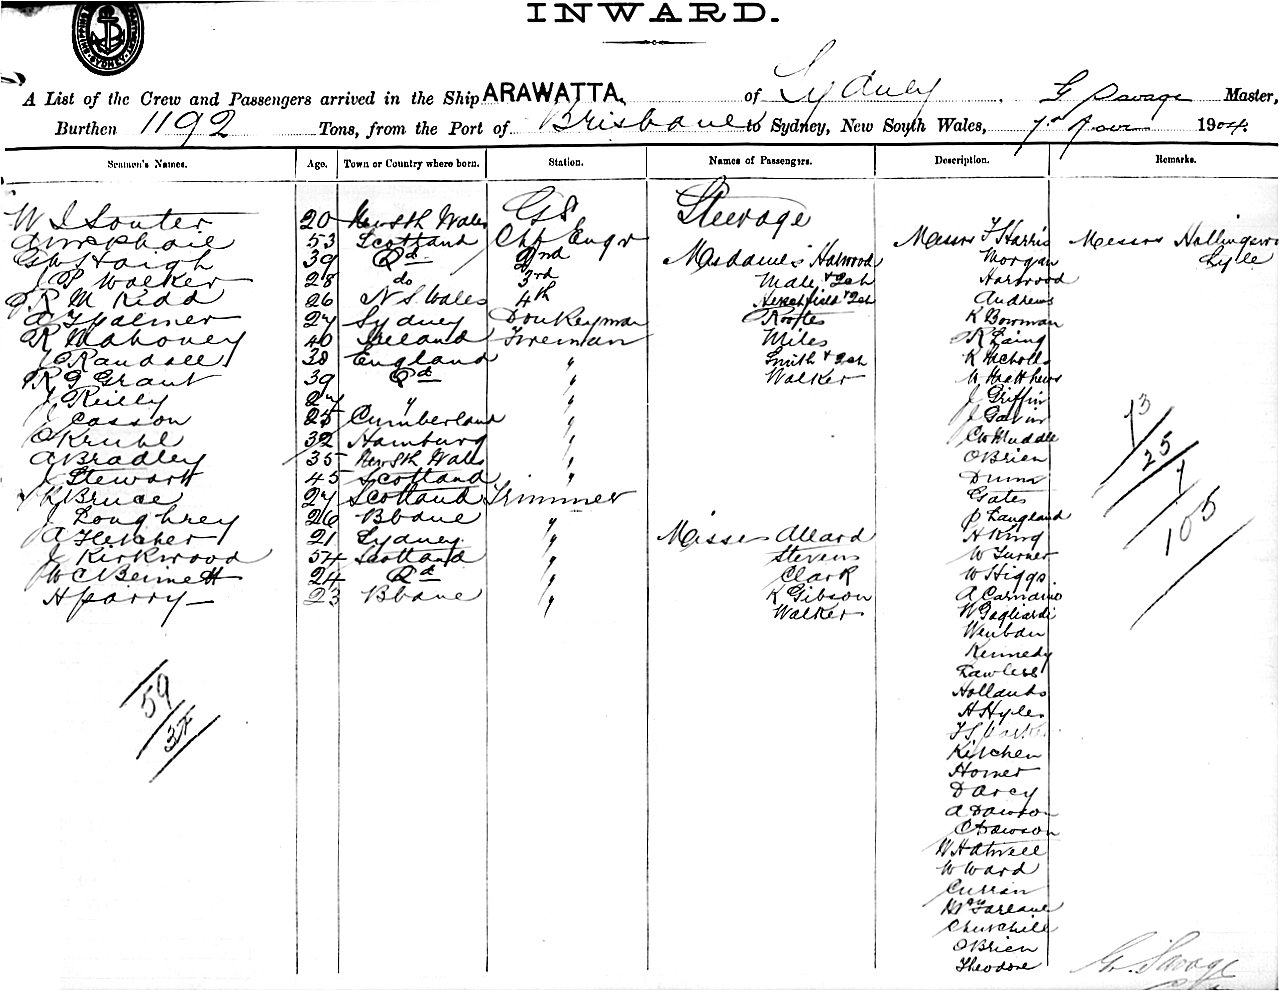 INWARD.
A List of the Crew and Passengers arrived in the Ship ARAWATTA of Sydney G Savage Master,
Burthen 1192 Tons, from the Port of Brisbane to Sydney, New South Wales, 1904.
Seamen's Names. Age. Town or Country where born. Station. Names of Passengers. Description. Remarks.
W J Souter 20 New Sth Wales G S Steerage
53 Scotland Chf Engr Messrs F Harris Messrs
G W Haigh 39 Do 2nd Mesdames Halwood Morgan Lyle
J P Walker 28 do 3rd Male & 2ch Harwood
R M Kidd 26 N S Wales 4th & 2ch Andrews
A J Palmer 27 Sydney Donkeyman Rootes K Bowman
R Mahoney 40 Ireland Fireman Miles R Laing
J Randall 38 England " Smith & 2ch K Nicholls
R G Grant 39 Do " Walker W Matthews
J Reilly 27 " " J Griffin
J Casson 25 Cumberland " J Gavin
O Kruhl 32 Hamburg " C W Muddle
A Bradley 35 New Sth Wales " O'Brien
J Stewart 45 Scotland " Dunn
Bruce 27 Scotland Trimmer Gates
J Loughrey 26 Bbane " P Langland
A Fletcher 21 Sydney " Misses Allard A King
J Kirkwood 54 Scotland " Stevens W Turner
W C Bennett 24 Do " Clark W Higgs
H Parry 23 Bbane " K Gibson A Carnaino
Walker W Gagliardi
Wenban
Kennedy
Lawless
Hollands
A Hyles
Kitchen
Homer
Darcy
A Dawson
C Dawson
W Hatwell
W Ward
Curran
McFarlane
Churchill
O'Brien
Theodore
13
25
7
105
59
37
G. Savage